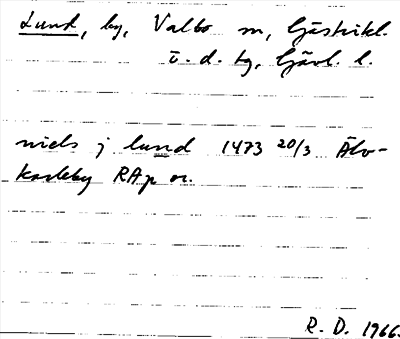 Lund, by, Valbo sn, Gästrikl.
v. d. tg, Gävl. l.
niels j lund 1473 20/3 Älv-
karleby RAp or.
R. D. 1966.